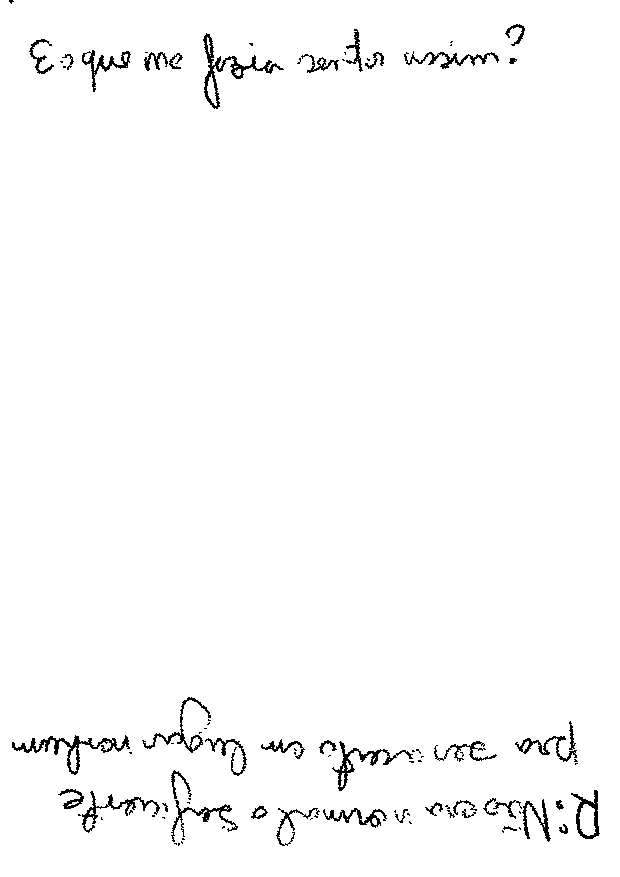 E o que me fazia sentir assim?
R: Não era normal o suficiente
pra ser aceito em lugar nenhum